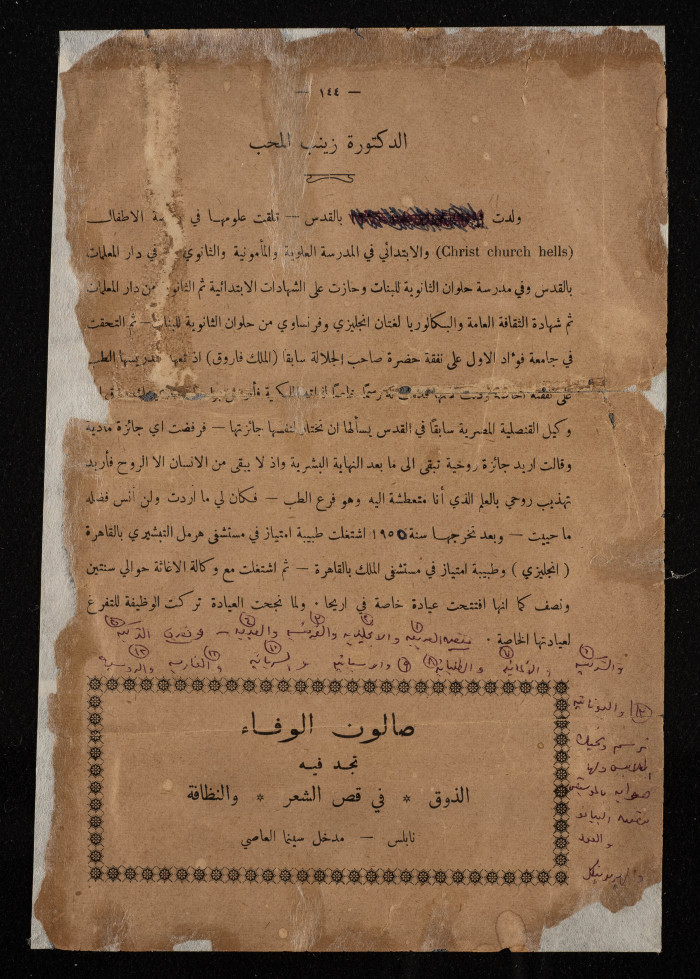 — ١٤٤ —
الدكتورة زينب المحب
ولدت بالقدس — تلقت علومها في الاطفال
(Christ church hells) والابتدائي في المدرسة العلوية والمأمونية والثانوي في دار المعلمات
بالقدس وفي مدرسة حلوان الثانوية للبنات وحازت على الشهادات الابتدائية ثم الثانوية من دار المعلمات
ثم شهادة الثقافة العامة والبكالوريا لغتان انجليزي وفرنساوي من حلوان الثانوية للبنات — ثم التحقت
في جامعة فؤاد الاول على نفقة حضرة صاحب الجلالة سابقا (الملك فاروق) اذ تعهد بتدريسها الطب
على نفقته الخاصة
وكيل القنصلية المصرية سابقاً في القدس يسألها ان تختار لنفسها جائزتها — فرفضت اي جائزة مادية
وقالت اريد جائزة روحية تبقى الى ما بعد النهاية البشرية واذ لا يبقى من الانسان الا الروح فأريد
تهذيب روحي بالعلم الذي أنا متعطشة اليه وهو فرع الطب — فكان لي ما أردت ولن أنس فضله
ما حييت — وبعد تخرجها سنة ١٩٥٥ اشتغلت طبيبة امتياز في مستشفى هرمل التبشيري بالقاهرة
( انجليزي ) وطبيبة امتياز في مستشفى الملك بالقاهرة — ثم اشتغلت مع وكالة الاغاثة حوالي سنتين
ونصف كما انها افتتحت عيادة خاصة في اريحا · ولما نجحت العيادة تركت الوظيفة للتفرغ
لعيادتها الخاصة · العربية والانجليزية والفرنسية والعبرية التركية
والألمانية والطليانية والفارسية والروسية
واليونانية
ترسم وتحيك
الملابس ولها
بالموسيقى
البيانو
والعود
صالون الوفاء
تجد فيه
الذوق * في قص الشعر * والنظافة
نابلس — مدخل سينما العاصي